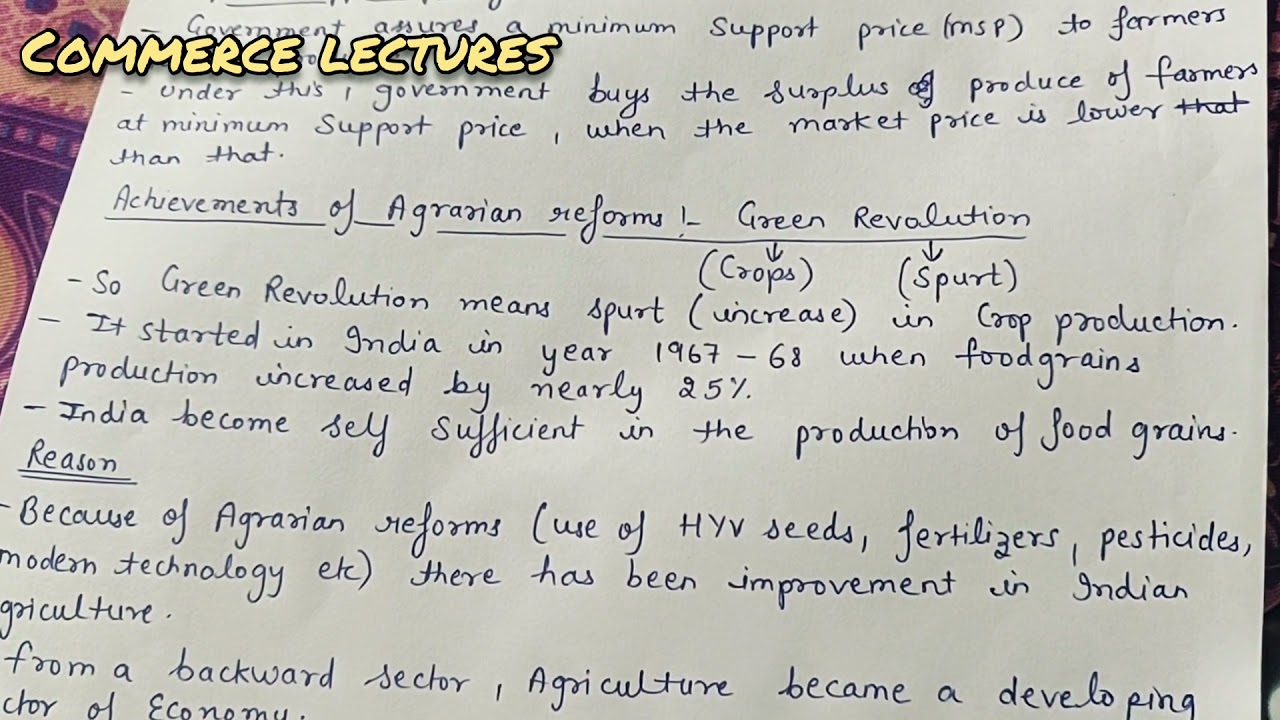 - Government assures a minimum Support price (MSP) to farmers
COMMERCE LECTURES
- Under this, government buys the surplus of produce of farmers
at minimum Support price, when the market price is lower that
than that.
Achievements of Agrarian reforms :- Green Revalution
(Crops) (Spurt)
- So Green Revolution means spurt (increase) in Crop production.
- It started in India in year 1967-68 when foodgrains
production increased by nearly 25%.
- India become self Sufficient in the production of food grains.
Reason
- Because of Agrarian reforms (use of HYV seeds, fertilizers, pesticides,
modern technology etc) there has been improvement in Indian
griculture.
from a backward sector, Agriculture became a developing
ctor of Economy.